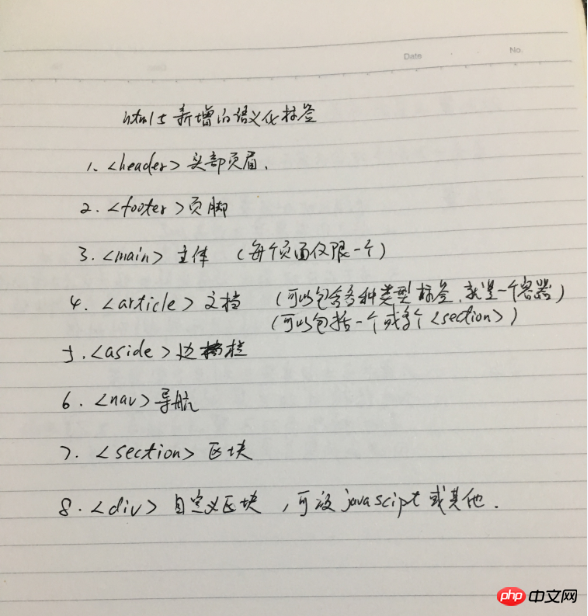 Date No.
html5新增的语义化标签
1. <header> 头部页眉.
2. <footer> 页脚
3. <main> 主体 (每个页面仅限一个)
4. <article> 文档 (可以包含各种类型标签,就是一个容器)
(可以包括一个或多个<section>)
5. <aside> 边栏
6. <nav> 导航
7. <section> 区块
8. <div> 自定义区块, 可设javascipt或其他.
php 中文网